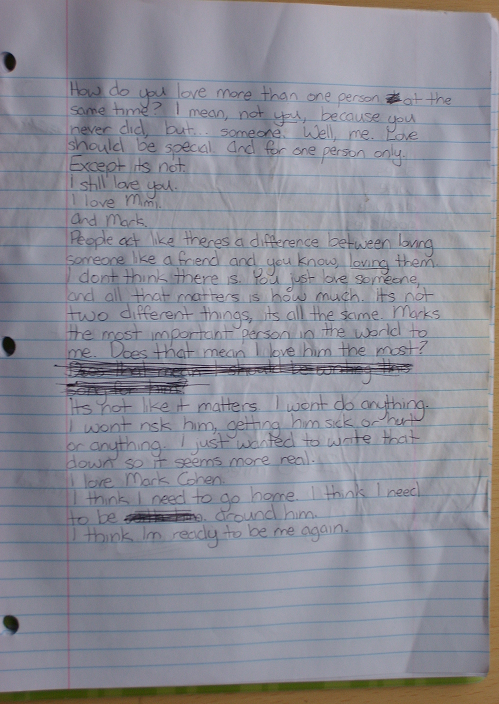 How do you love more than one person at the
same time? I mean, not you, because you
never did, but... someone. Well, me. Love
should be special and for one person only.
Except its not.
I still love you.
I love Mimi.
And Mark.
People act like theres a difference between loving
someone like a friend and you know, loving them.
I dont think there is. You just love someone,
and all that matters is how much. its not
two different things, its all the same. Marks
the most important person in the world to
me. Does that mean I love him the most?
Its not like it matters. I wont do anything.
I wont risk him, getting him sick or hurt
or anything. I just wanted to write that
down so it seems more real.
I love Mark Cohen.
I think I need to go home. I think I need
to be around him.
I think Im ready to be me again.